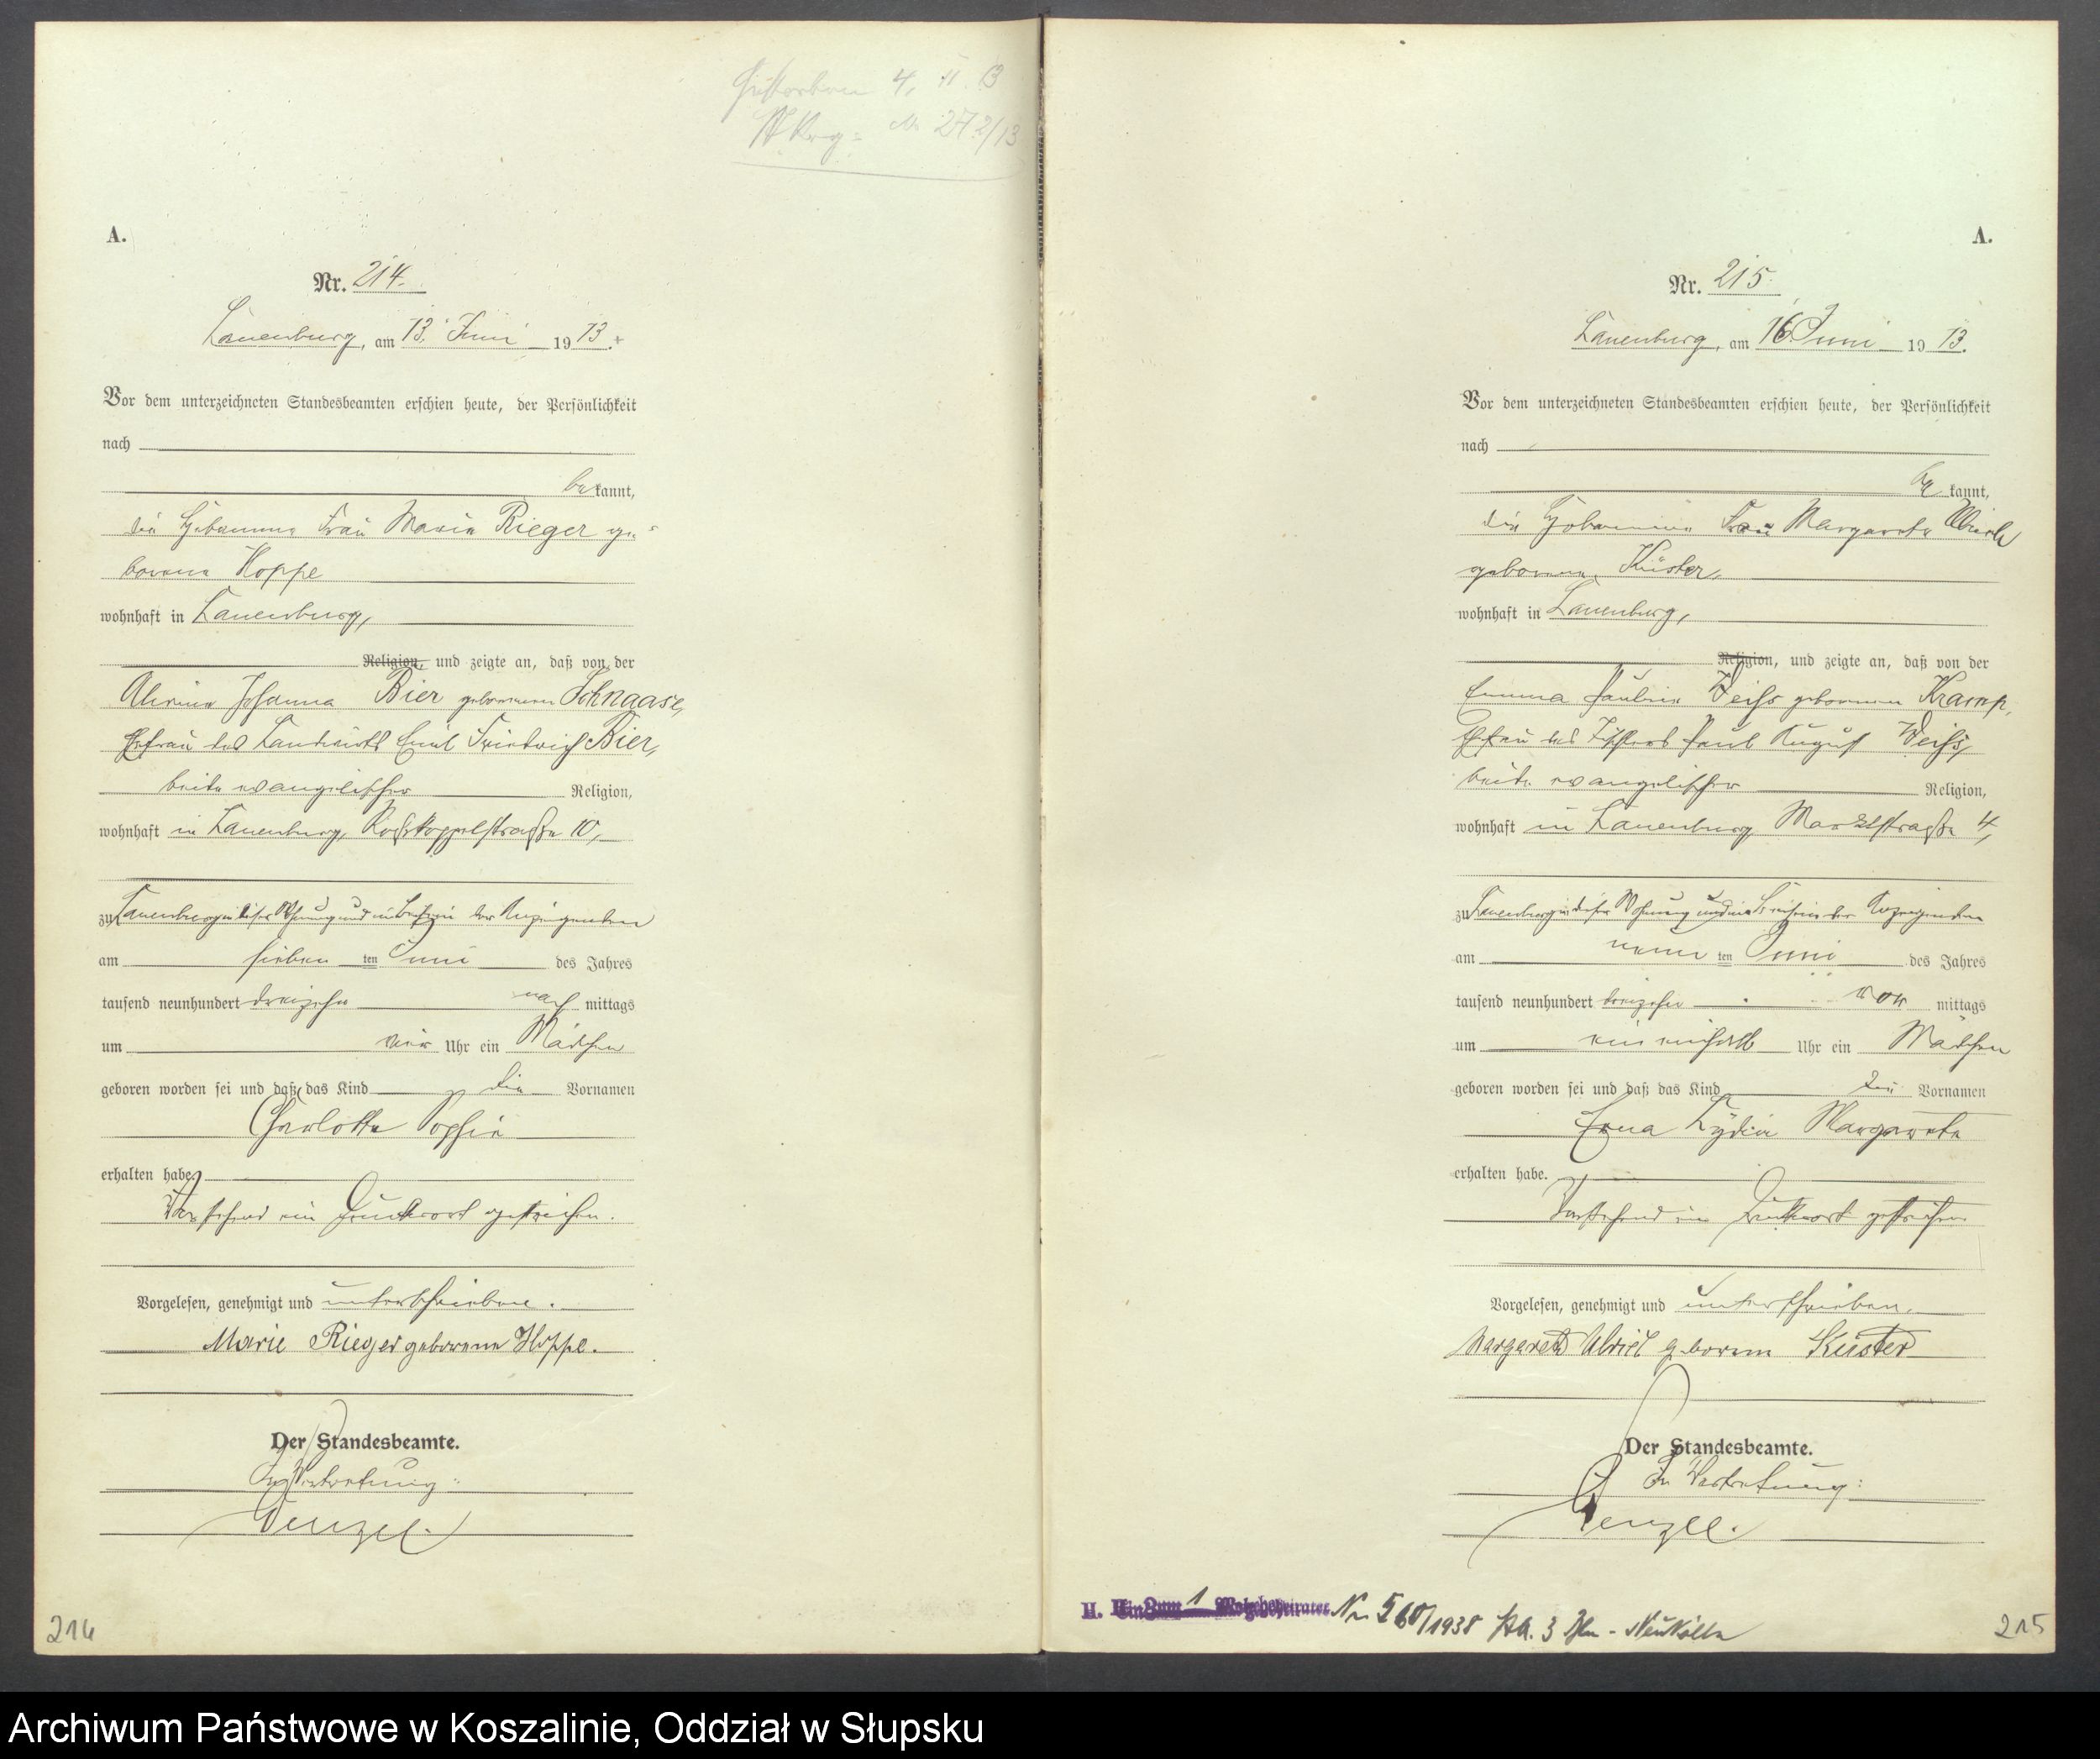 Gestorben 4. 11. 13
Nr 272/13
A.
Nr. 214.
Lauenburg, am 13. Juni 1913.
Vor dem unterzeichneten Standesbeamten erschien heute, der Persönlichkeit
nach
bekannt,
die Hebamme Frau Marie Rieger ge-
borene Hoppe
wohnhaft in Lauenburg,
Religion, und zeigte an, daß von der
Alwine Johanna Bier geborenen Schnaase,
Ehefrau des Landwirts Emil Friedrich Bier,
beide evangelischer Religion,
wohnhaft in Lauenburg, Roßkoppelstraße 10,
zu Lauenburg in dieser Wohnung und im Beisein der Anzeigenden
am sieben ten Juni des Jahres
tausend neunhundert dreizehn nach mittags
um vier Uhr ein Mädchen
geboren worden sei und daß das Kind die Vornamen
Charlotte Sophie
erhalten habe.
Vorstehend ein Druckwort gestrichen.
Vorgelesen, genehmigt und unterschrieben.
Marie Rieger geborene Hoppe.
Der Standesbeamte.
In Vertretung:
Wenzel.
214
A.
Nr. 215.
Lauenburg, am 16. Juni 1913.
Vor dem unterzeichneten Standesbeamten erschien heute, der Persönlichkeit
nach
be kannt,
die Hebamme Frau Margarete Ulrich
geborene Küster,
wohnhaft in Lauenburg,
Religion, und zeigte an, daß von der
Emma Pauline Weiß geborenen Kramp,
Ehefrau des Tischlers Paul August Weiß,
beide evangelischer Religion,
wohnhaft in Lauenburg, Marktstraße 4,
zu Lauenburg in dieser Wohnung und im Beisein der Anzeigenden
am neun ten Juni des Jahres
tausend neunhundert dreizehn vor mittags
um ein einhalb Uhr ein Mädchen
geboren worden sei und daß das Kind die Vornamen
Erna Lydia Margarete
erhalten habe.
Vorstehend ein Druckwort gestrichen.
Vorgelesen, genehmigt und unterschrieben.
Margarete Ulrich geborene Küster
Der Standesbeamte.
In Vertretung:
Wenzel.
H. 1 Nr. 560/1938 StA. 3 Bln - Neukölln
215
Archiwum Państwowe w Koszalinie, Oddział w Słupsku